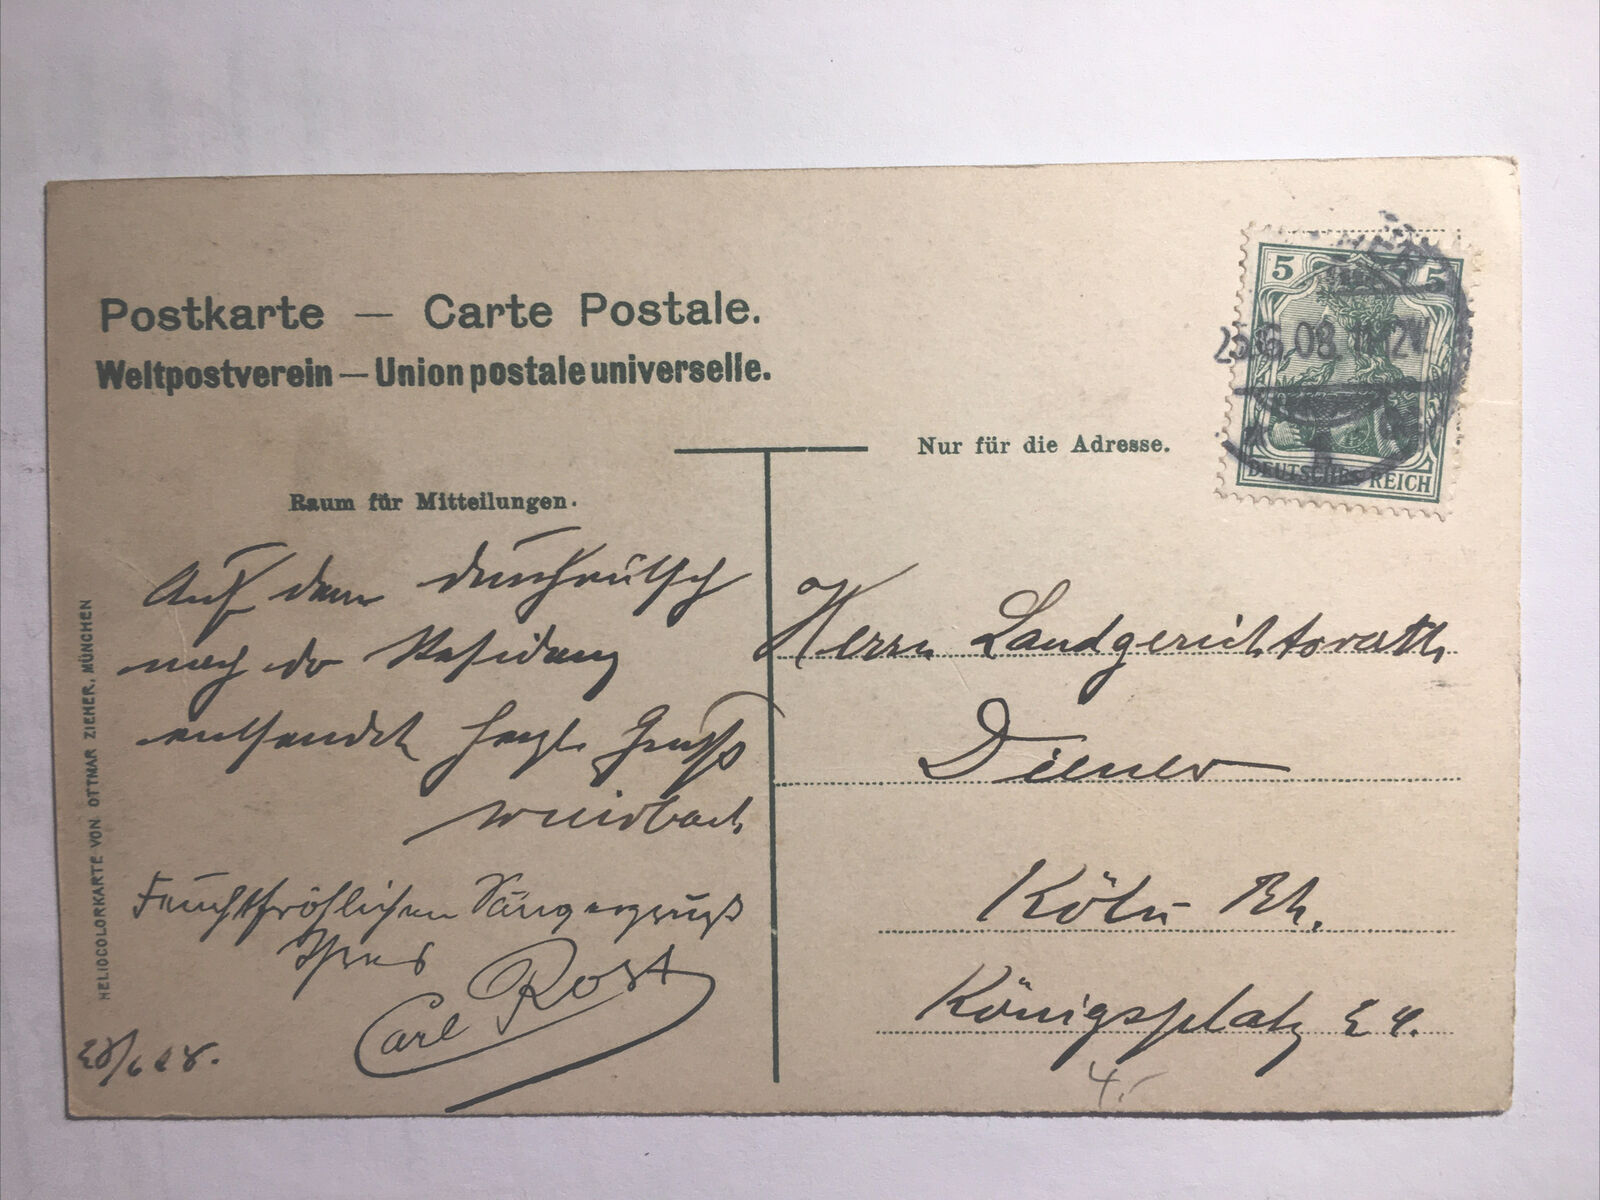 Postkarte — Carte Postale.
Weltpostverein — Union postale universelle.
Nur für die Adresse.
Raum für Mitteilungen.
5 5
25.6.08. 11-12V.
DEUTSCHES REICH
Auf dem
nach der Residenz
entsendet herzl. Gruß
Feuchtfröhlichen Sängergruß
Ihres
Carl Rost
28/6 08.
Herrn Landgerichtsrath
Diener
Köln Rh.
Königsplatz 24.
4.-
HELIOCOLORKARTE VON OTTMAR ZIEHER, MÜNCHEN